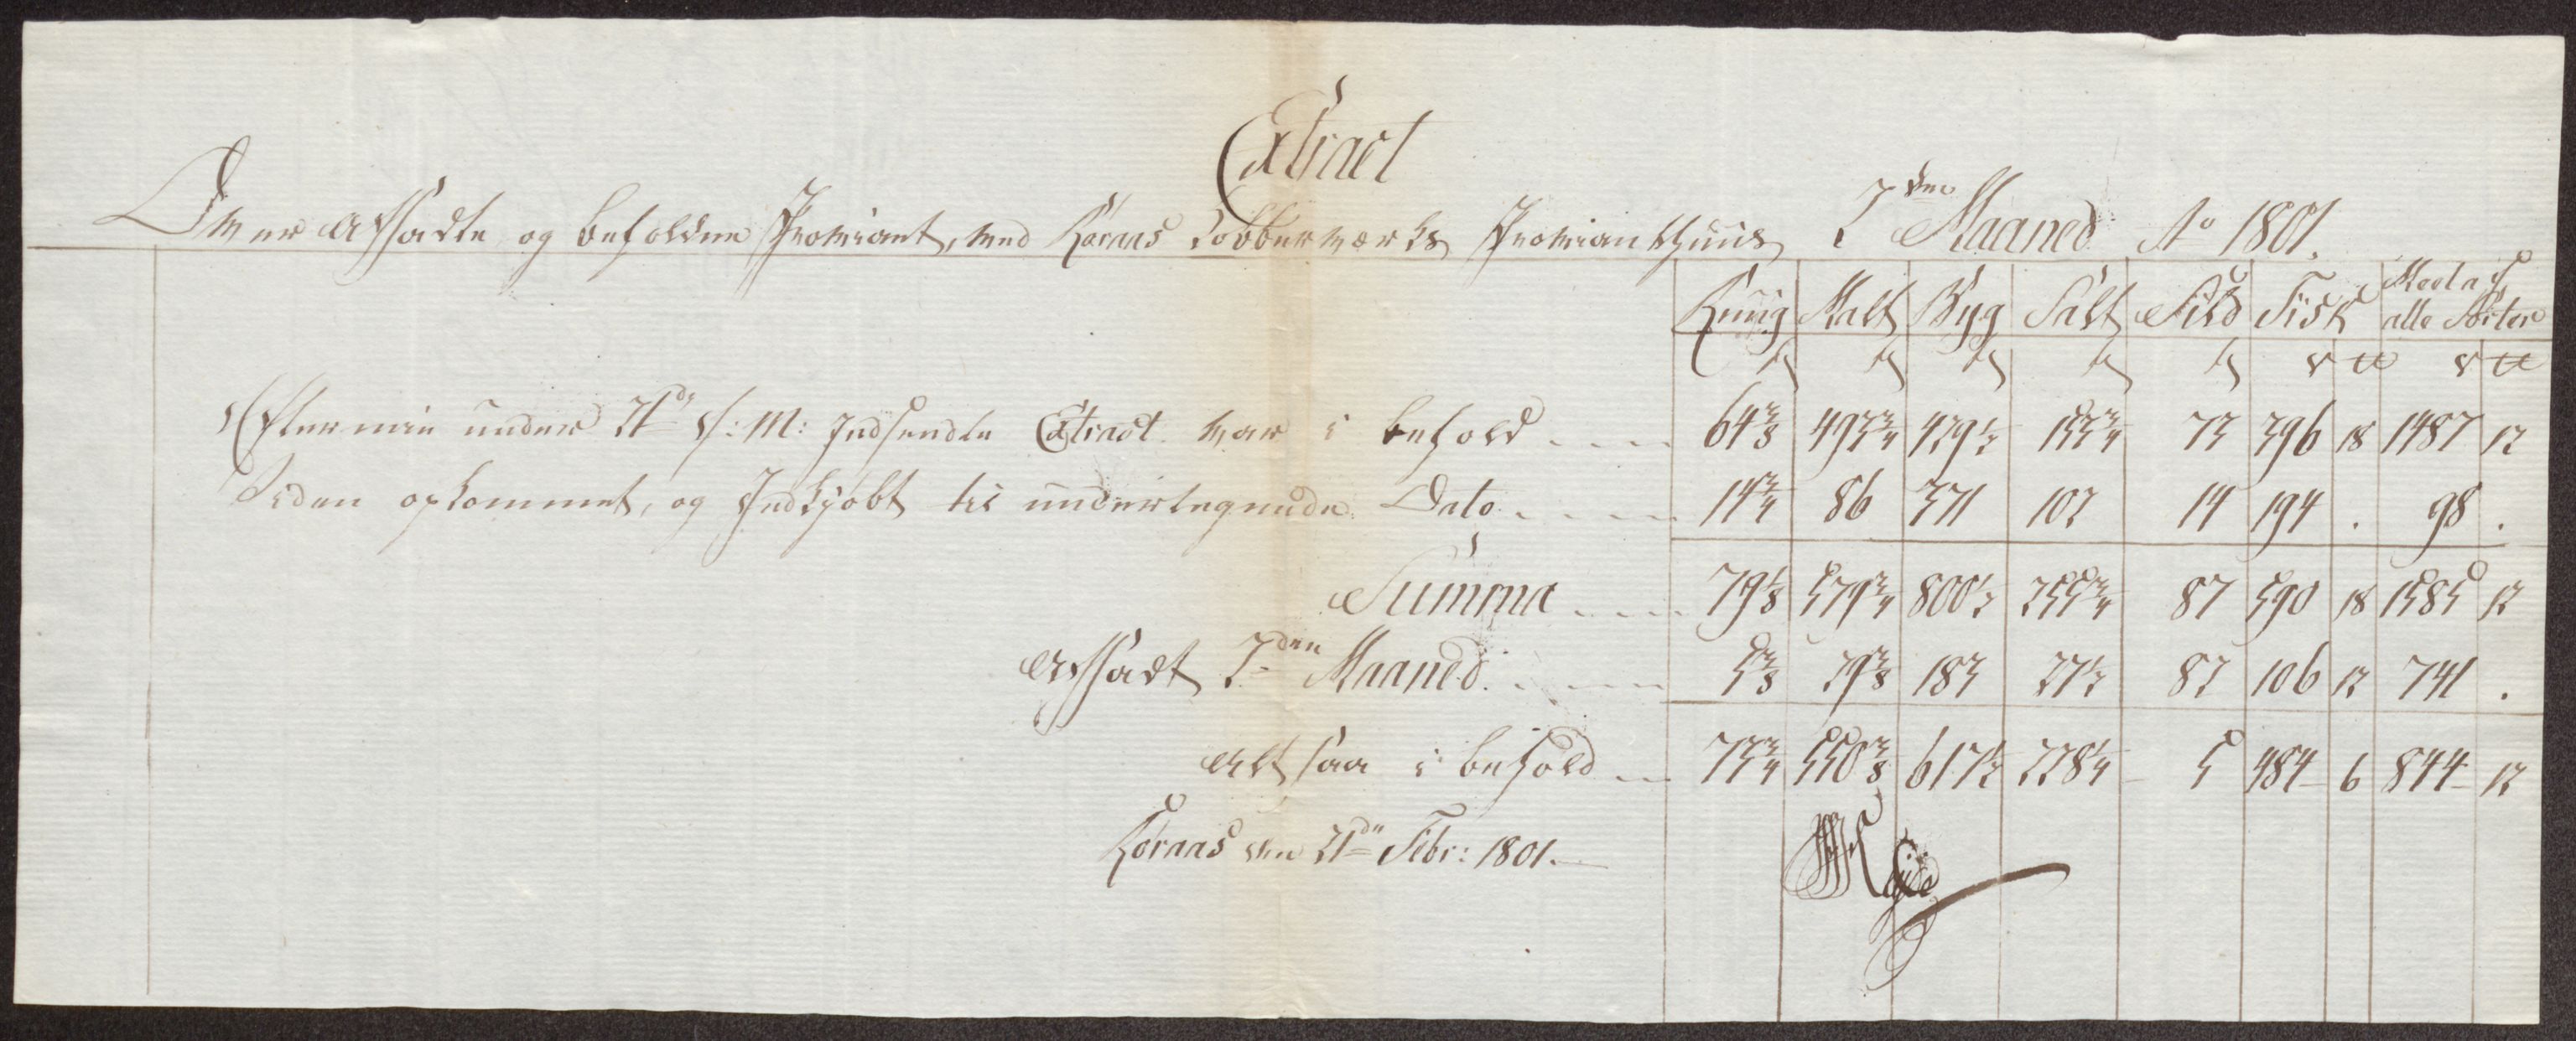 Extract
Over afsadte og beholden Proviant, ved Røraas Kobberværks Provianthuus 2den Maaned Ao 1801.
Ruug Malt Byg Salt Sild Fisk Meel af alle Sorter
Efter min under 21de f: M: Indsendte Extract var i behold .... 64 3/8 493 3/4 429 1/2 153 3/4 73 396 18 1487 12
Siden opkommet, og Indkjøbt til undertegnede Dato .... 14 3/4 86 371 102 14 194 . 98 .
Summa .... 79 1/8 579 3/4 800 1/2 255 3/4 87 590 18 1585 12
Afsadt 2den Maaned .... 5 3/8 29 3/8 183 27 1/2 82 106 12 741 .
Alt saa i behold ... 73 3/4 550 3/8 617 1/2 228 1/4 5 484 6 844 12
Røraas den 21de Febr: 1801.